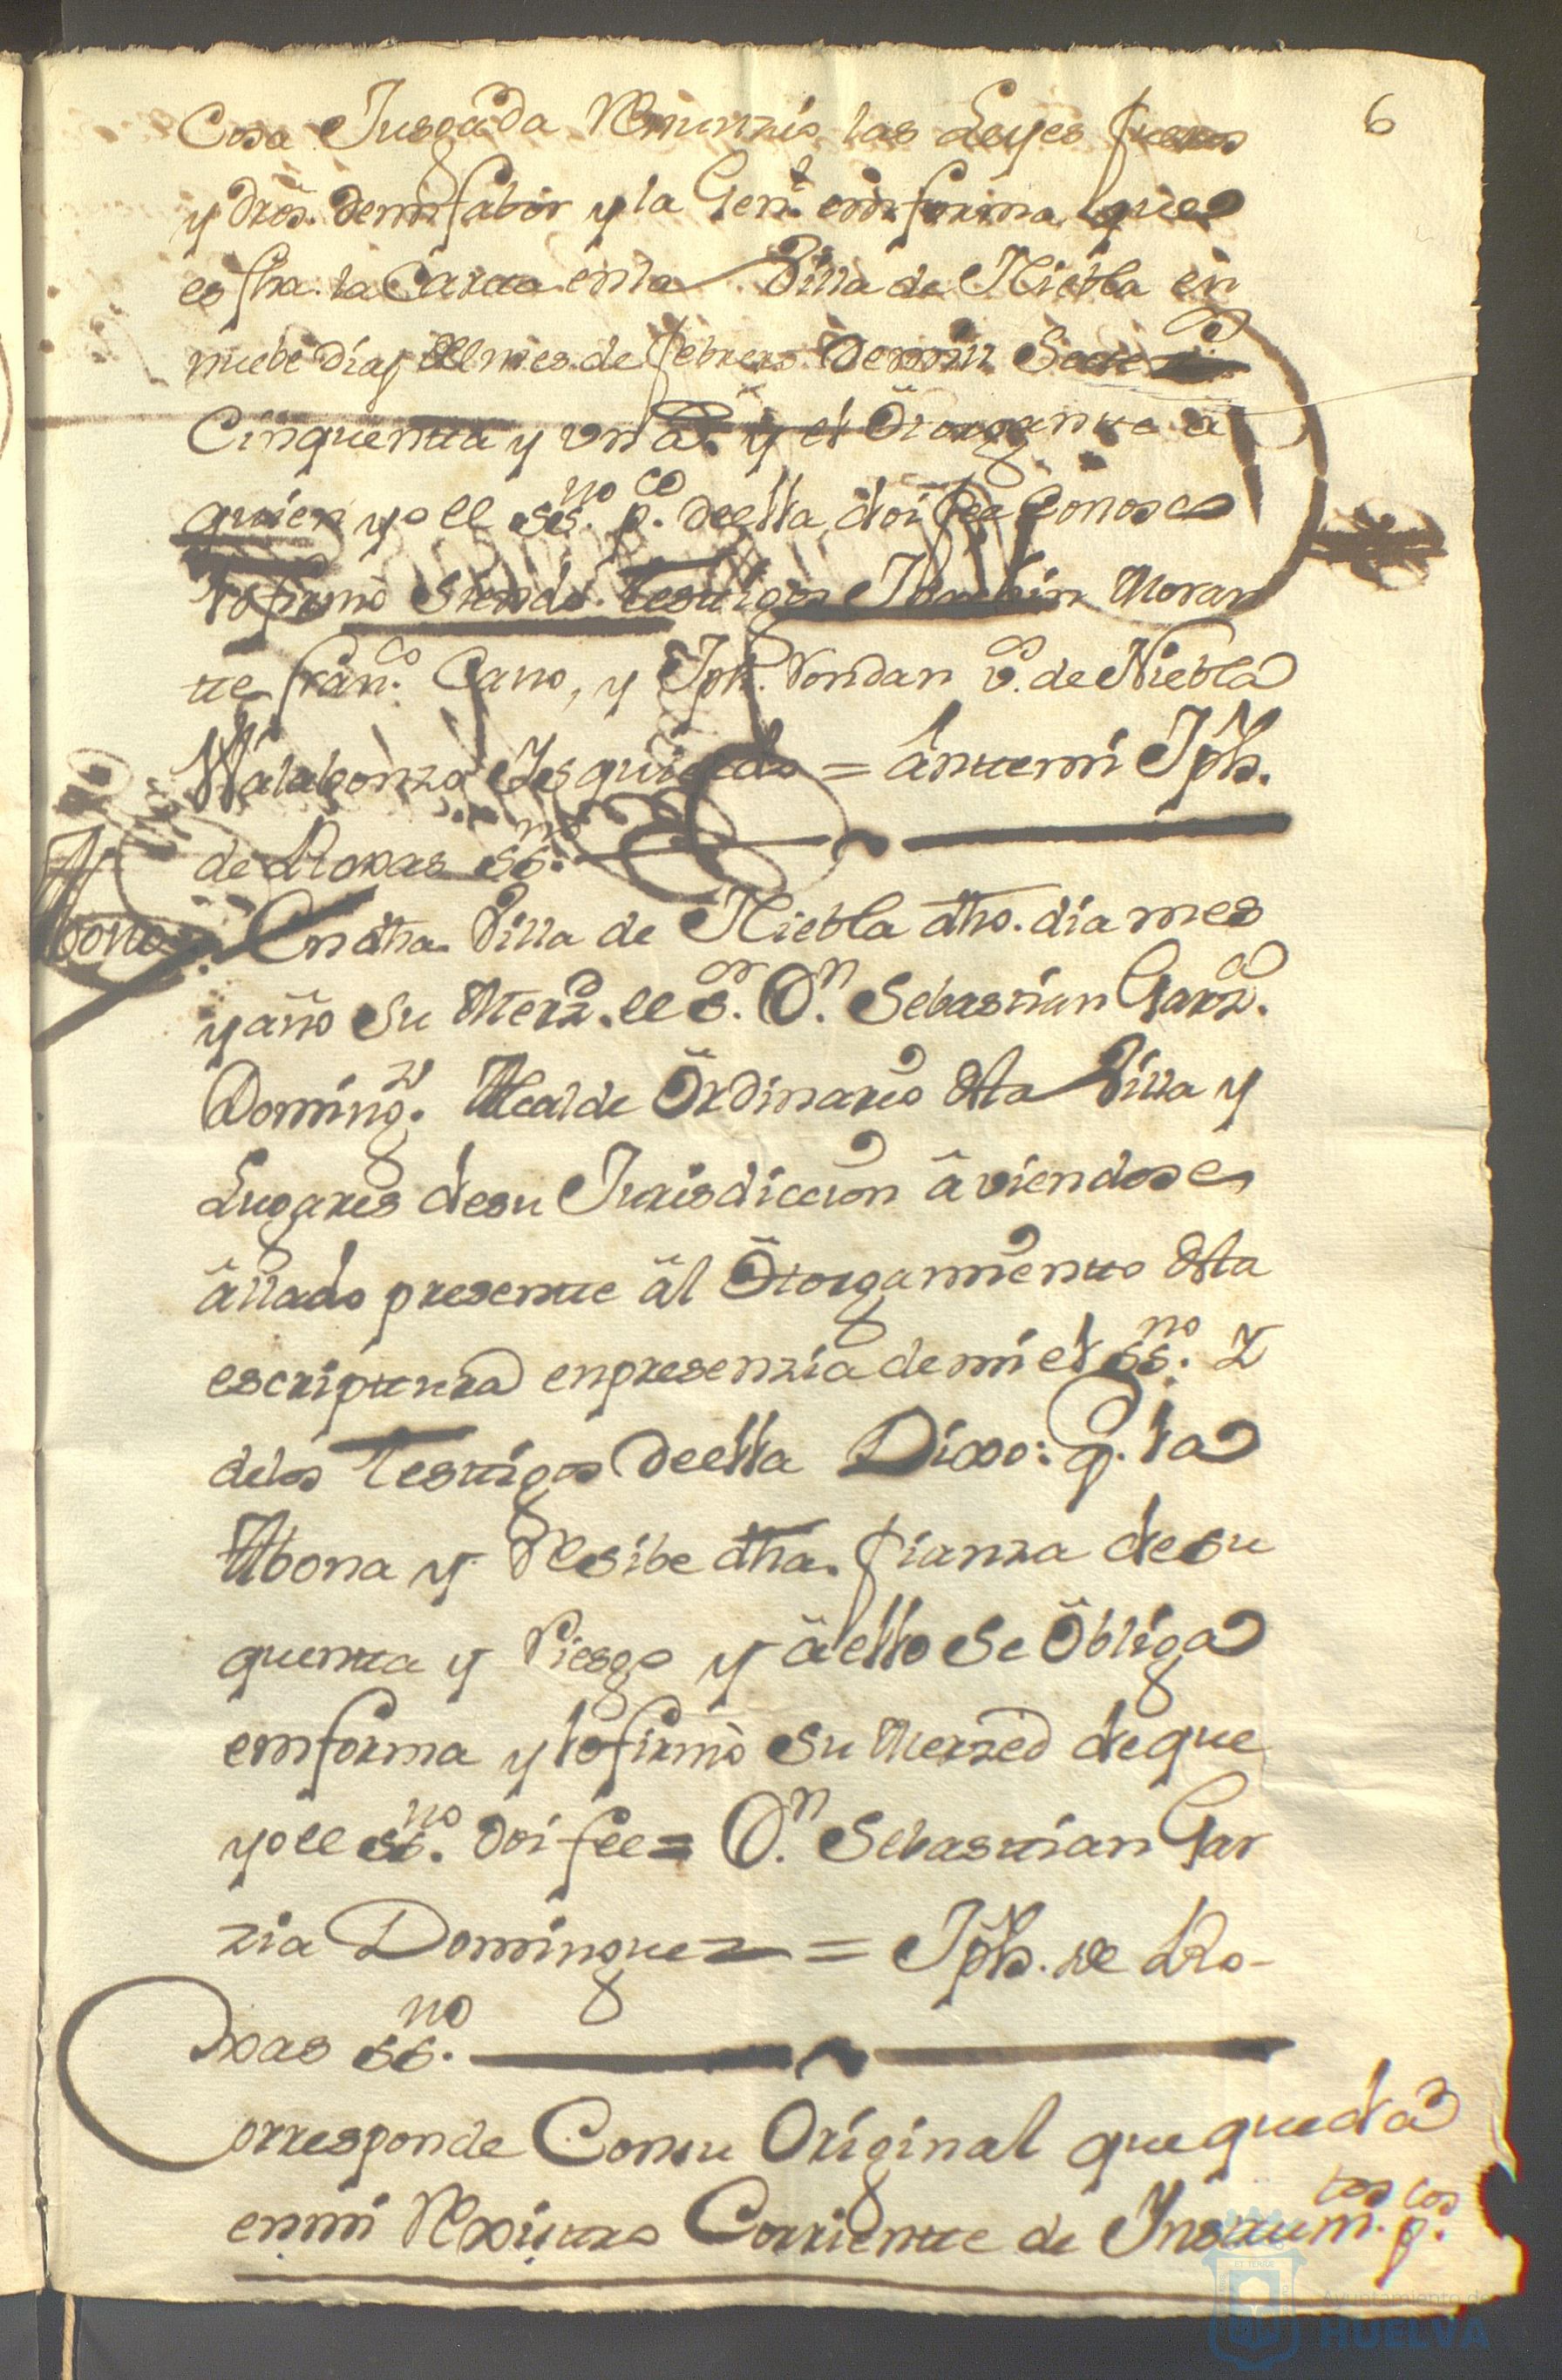 6
Cosa Jusgada Renunzio las Leyes fueros
y dros. demi fabor y la Gen.l en forma que
es fha. la Carta en la Villa de Niebla en
nuebe dias del mes de febrero de mill Setez.os
Cinquenta y un a.s y el Ôtorgante â
quien yo el ss.no p.co de ella, doi fee Conosco
lo firmò siendo testigos Joachin Moran
te fran.co Cano, y Jph. Rondan v.os de Niebla
= ântemi Jph.
de Roxas ss.no
Abono
En dha. Villa de Niebla dho. dia mes
y año Su Merz.d el s.or D.n Sebastian Garz.a
Doming.z Alcalde Ôrdinario desta Villa y
Lugares de su Jurisdiccion âviendose
âllado presente âl Ôtorgamiento desta
escriptura en presenzia de mi el ss.no Y
de los testigos de ella Dixo: q. la
Abona y Resibe dha. fianza de su
quenta y Riesgo y â ello se Ôbliga
en forma y lo firmò su Merzed de que
yo el ss.no doi fee = D.n Sebastian Gar
zia Dominguez = Jph. de Ro-
xas ss.no
Corresponde Con su Original que queda
en mi Rexistro Corriente de Instrum.tos p.cos
Ayuntamiento de
HUELVA